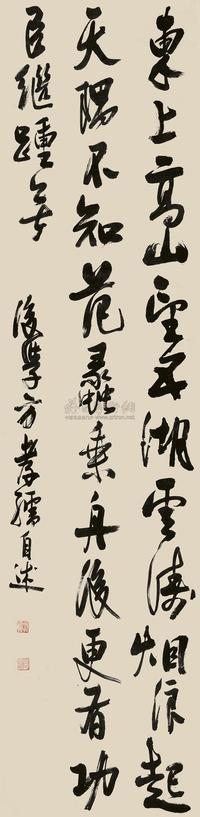 東上高山望五湖雲濤烟浪起
天隅不知范蠡乘舟後更有功
臣繼踵無
後學方孝孺自述